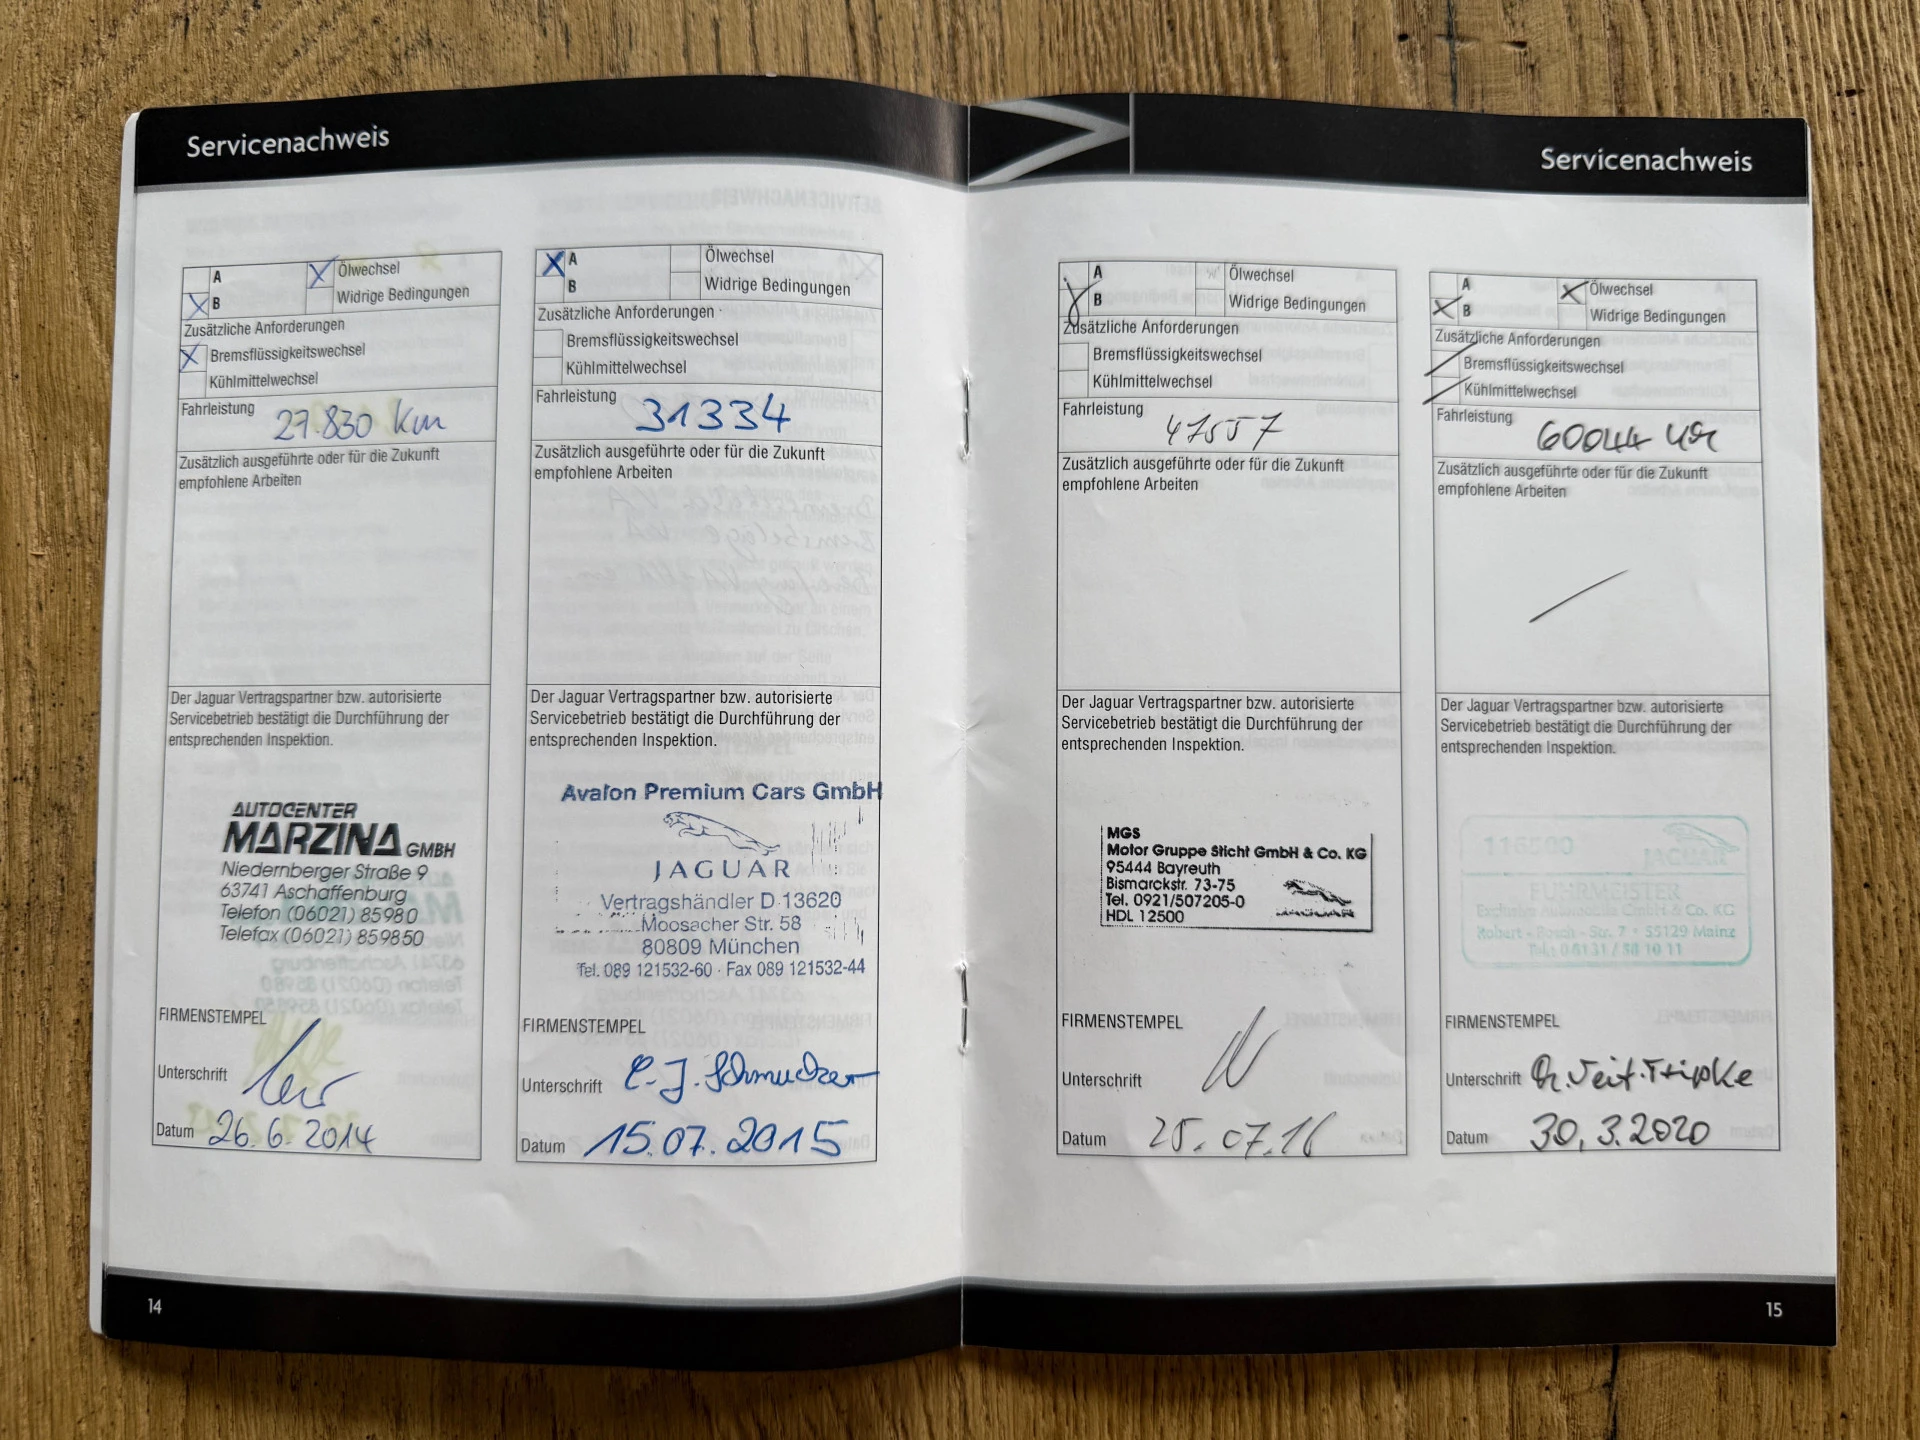 Servicenachweis
A
B
Ölwechsel
Widrige Bedingungen
Zusätzliche Anforderungen
Bremsflüssigkeitswechsel
Kühlmittelwechsel
Fahrleistung
27.830 km
Zusätzlich ausgeführte oder für die Zukunft
empfohlene Arbeiten
Der Jaguar Vertragspartner bzw. autorisierte
Servicebetrieb bestätigt die Durchführung der
entsprechenden Inspektion.
AUTOCENTER
MARZINA GMBH
Niedernberger Straße 9
63741 Aschaffenburg
Telefon (06021) 85980
Telefax (06021) 859850
FIRMENSTEMPEL
Unterschrift
Datum 26.6.2014
A
B
Ölwechsel
Widrige Bedingungen
Zusätzliche Anforderungen
Bremsflüssigkeitswechsel
Kühlmittelwechsel
Fahrleistung
31334
Zusätzlich ausgeführte oder für die Zukunft
empfohlene Arbeiten
Der Jaguar Vertragspartner bzw. autorisierte
Servicebetrieb bestätigt die Durchführung der
entsprechenden Inspektion.
Avalon Premium Cars GmbH
JAGUAR
Vertragshändler D 13620
Moosacher Str. 58
80809 München
Tel. 089 121532-60 · Fax 089 121532-44
FIRMENSTEMPEL
Unterschrift
Datum 15.07.2015
14
Servicenachweis
A
B
Ölwechsel
Widrige Bedingungen
Zusätzliche Anforderungen
Bremsflüssigkeitswechsel
Kühlmittelwechsel
Fahrleistung
47557
Zusätzlich ausgeführte oder für die Zukunft
empfohlene Arbeiten
Der Jaguar Vertragspartner bzw. autorisierte
Servicebetrieb bestätigt die Durchführung der
entsprechenden Inspektion.
MGS
Motor Gruppe Sticht GmbH & Co. KG
95444 Bayreuth
Bismarckstr. 73-75
Tel. 0921/507205-0
HDL 12500
JAGUAR
FIRMENSTEMPEL
Unterschrift
Datum 25.07.16
A
B
Ölwechsel
Widrige Bedingungen
Zusätzliche Anforderungen
Bremsflüssigkeitswechsel
Kühlmittelwechsel
Fahrleistung
60044 km
Zusätzlich ausgeführte oder für die Zukunft
empfohlene Arbeiten
Der Jaguar Vertragspartner bzw. autorisierte
Servicebetrieb bestätigt die Durchführung der
entsprechenden Inspektion.
JAGUAR
FUHRMEISTER
Exclusive Automobile GmbH & Co. KG
Robert - Bosch - Str. 7 · 55129 Mainz
FIRMENSTEMPEL
Unterschrift
Datum 30.3.2020
15